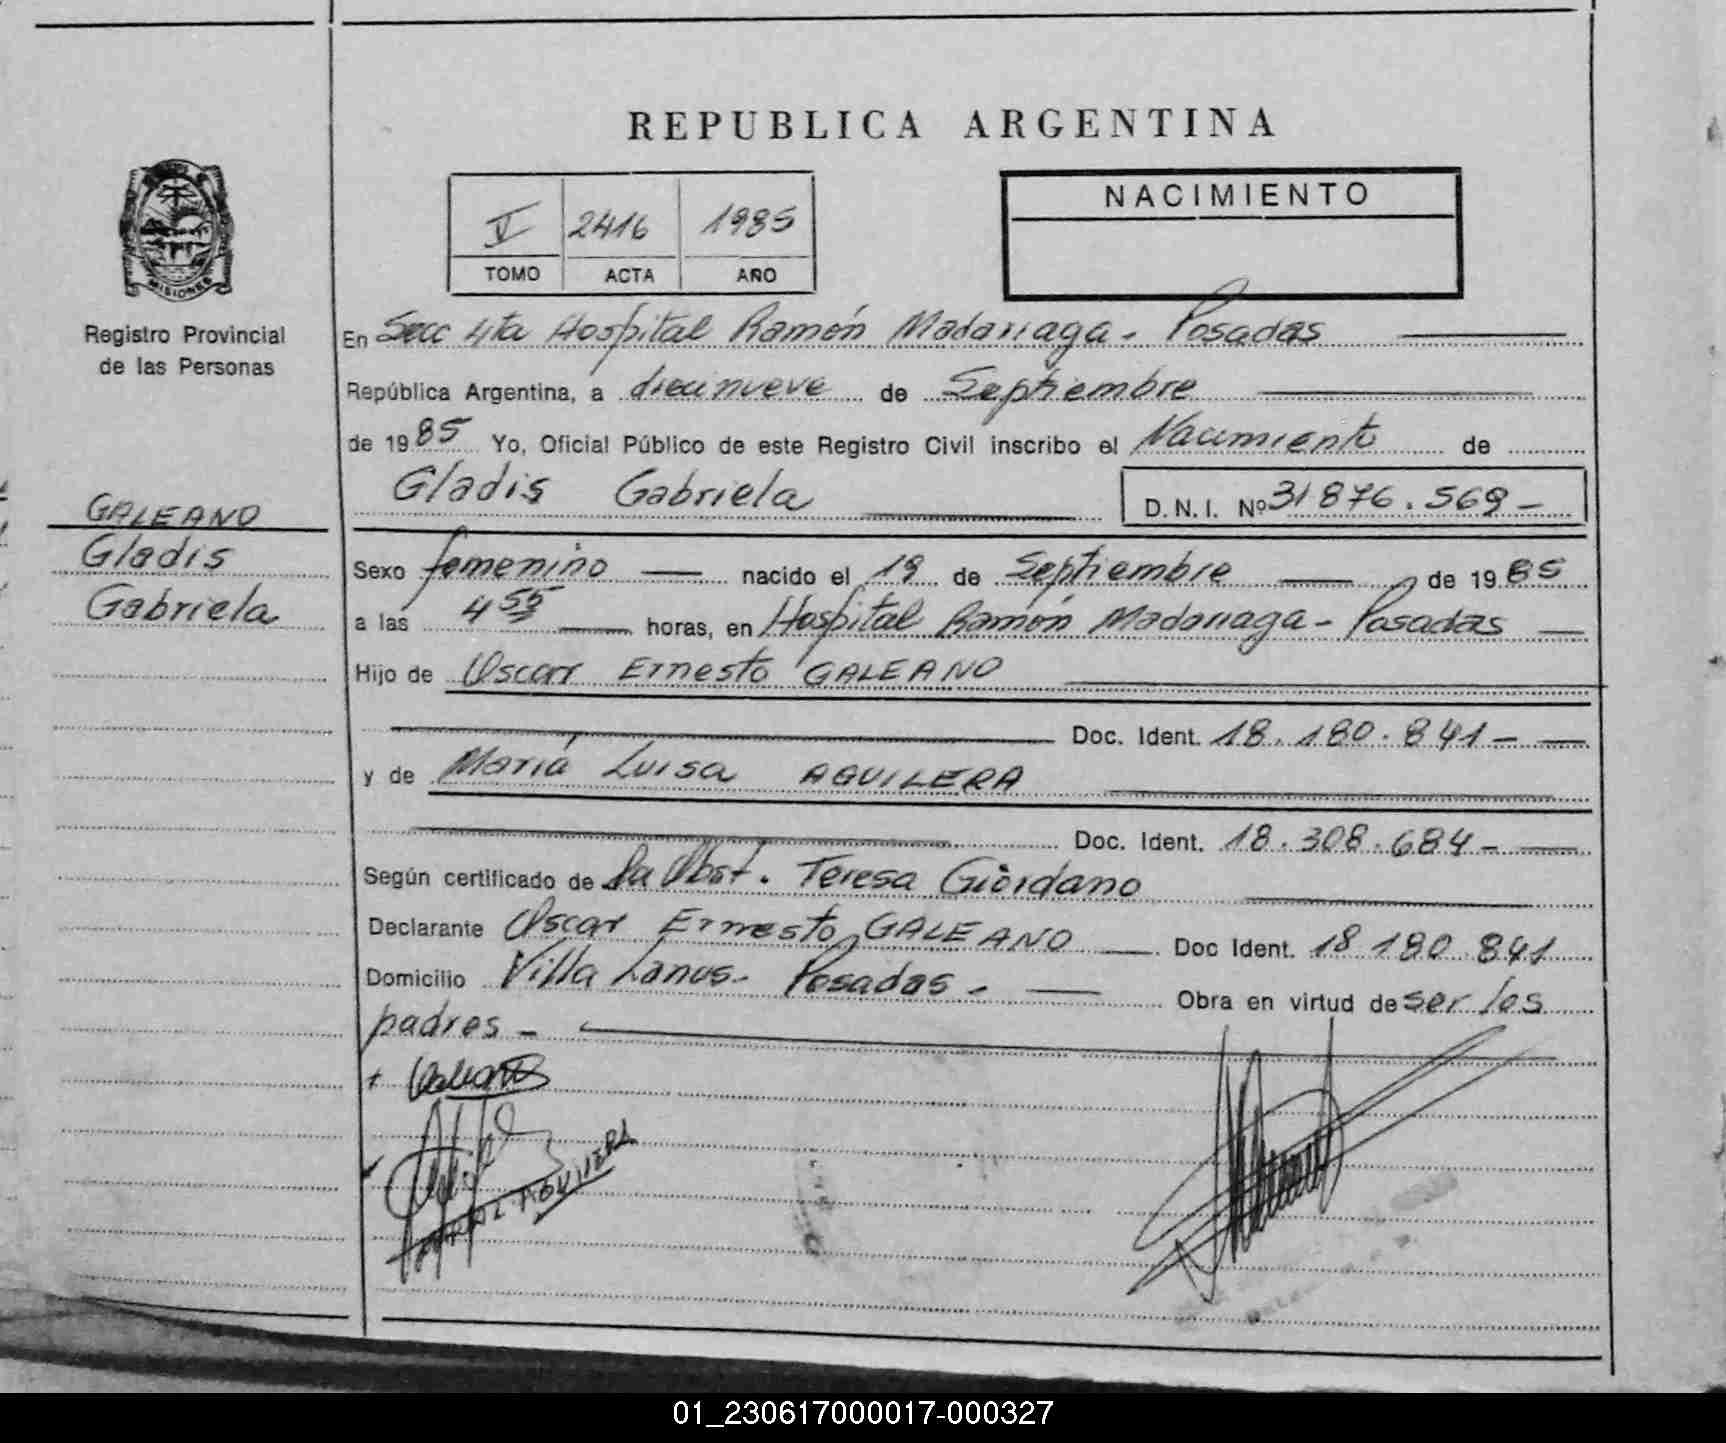 REPUBLICA ARGENTINA
NACIMIENTO
V 2416 1985
TOMO ACTA AÑO
MISIONES
Registro Provincial
de las Personas
En Secc 4ta Hospital Ramón Madariaga - Posadas
República Argentina, a diecinueve de Septiembre
de 1985 Yo, Oficial Público de este Registro Civil inscribo el Nacimiento de
Gladis Gabriela D.N.I. Nº 31876.569-
GALEANO
Gladis
Gabriela
Sexo femenino nacido el 19 de Septiembre de 1985
a las 4 55 horas, en Hospital Ramón Madariaga - Posadas
Hijo de Oscar Ernesto GALEANO
Doc. Ident. 18.180.841-
y de María Luisa AGUILERA
Doc. Ident. 18.308.684-
Según certificado de la Obst. Teresa Giordano
Declarante Oscar Ernesto GALEANO Doc Ident. 18 180.841
Domicilio Villa Lanus- Posadas- Obra en virtud de ser los
padres-
AGUILERA
01_230617000017-000327